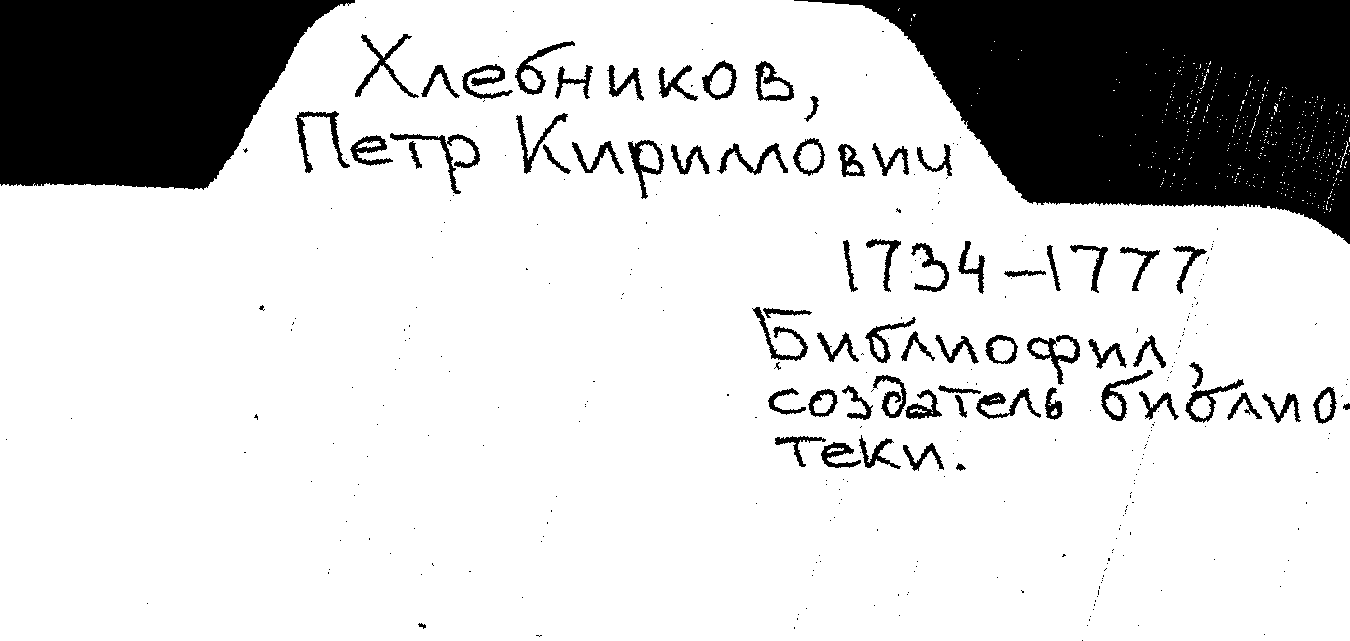 Хлебников,
Петр Кириллович
1734–1777
Библиофил,
создатель библио-
теки.